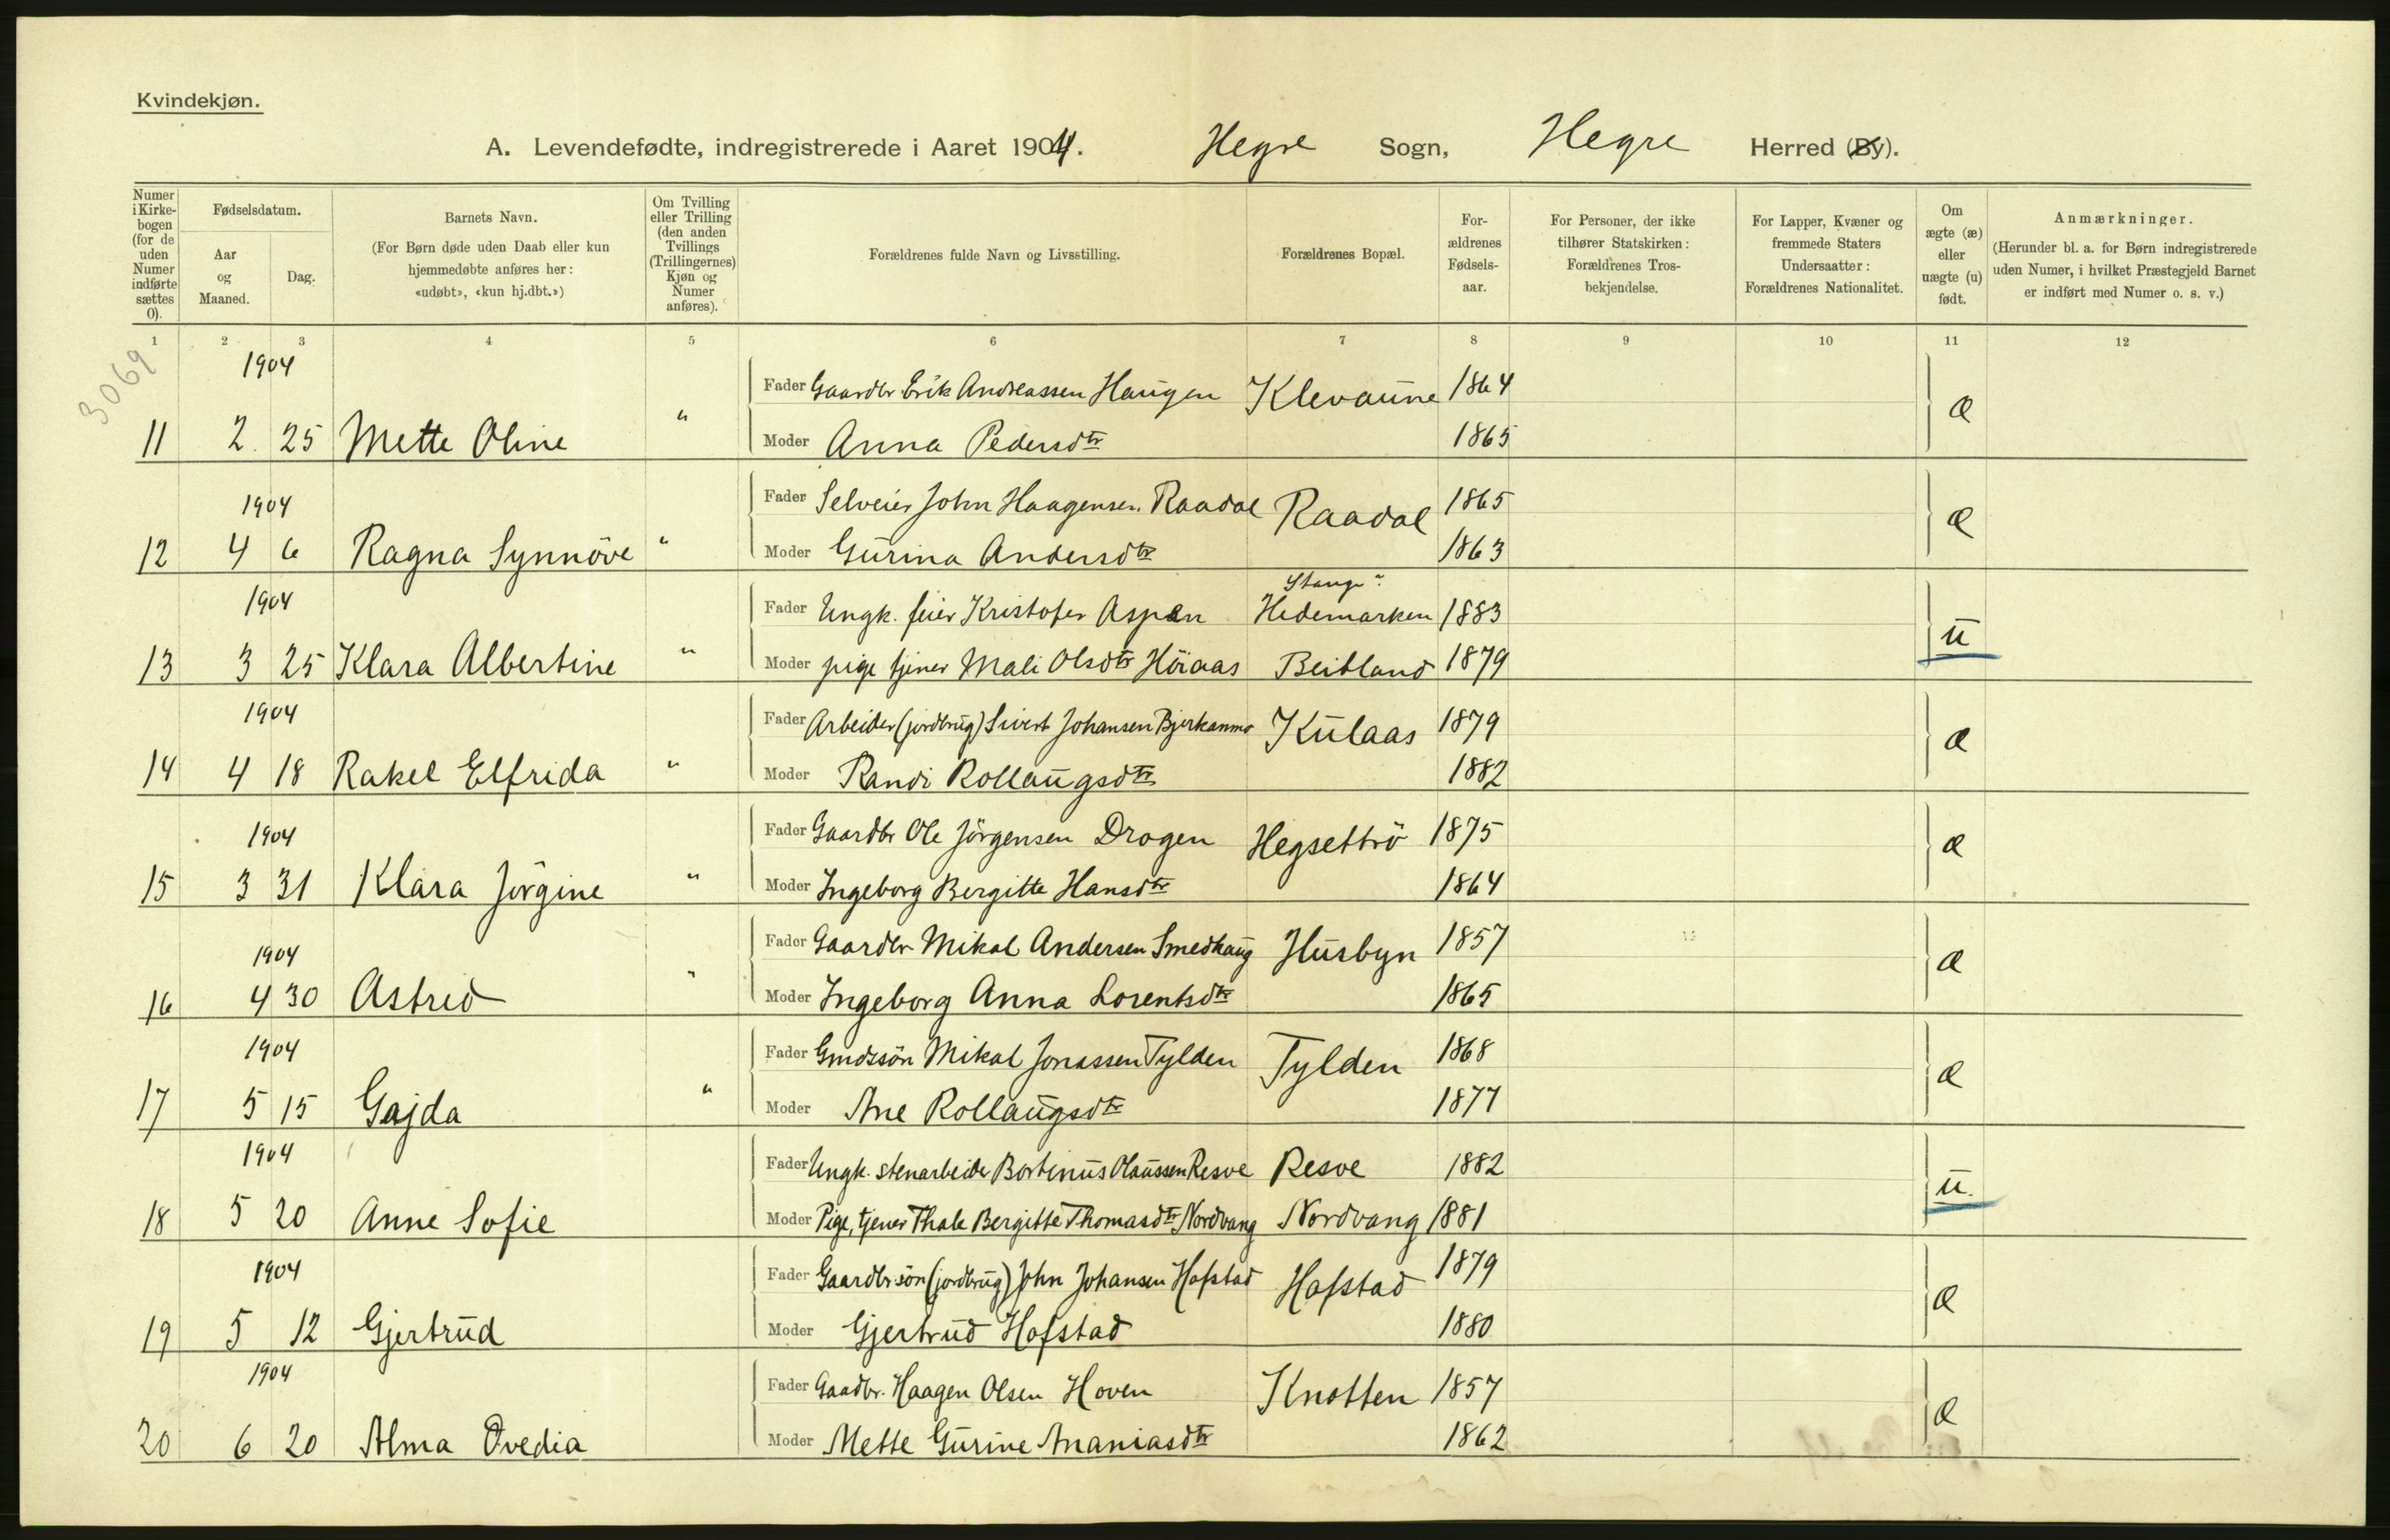 Kvindekjøn.
A. Levendefødte, indregistrerede i Aaret 1904. Hegre Sogn, Hegre Herred (By).
Numer i Kirkebogen (for de uden Numer indførte sættes 0).
Fødselsdatum.
Aar og Maaned.
Dag.
Barnets Navn.
(For Børn døde uden Daab eller kun hjemmedøbte anføres her: «udøbt», «kun hj.dbt.»)
Om Tvilling eller Trilling (den anden Tvillings (Trillingernes) Kjøn og Numer anføres).
Forældrenes fulde Navn og Livsstilling.
Forældrenes Bopæl.
Forældrenes Fødselsaar.
For Personer, der ikke tilhører Statskirken: Forældrenes Trosbekjendelse.
For Lapper, Kvæner og fremmede Staters Undersaatter: Forældrenes Nationalitet.
Om ægte (æ) eller uægte (u) født.
Anmærkninger.
(Herunder bl. a. for Børn indregistrerede uden Numer, i hvilket Præstegjeld Barnet er indført med Numer o. s. v.)
1 2 3 4 5 6 7 8 9 10 11 12
3069
1904
Fader Gaardbr Erik Andreassen Haugen Klevaune 1864 æ
11 2 25 Mette Oline " Moder Anna Pedersdtr 1865
1904
Fader Selveier John Haagensen Raadal Raadal 1865 æ
12 4 6 Ragna Synnöve " Moder Gurina Andersdtr 1863
1904 Stange
Fader Ungk. feier Kristofer Aspen Hedemarken 1883 u
13 3 25 Klara Albertine " Moder pige tjener Mali Olsdtr Höiaas Beitland 1879
1904
Fader Arbeider (jordbrug) Sivert Johansen Bjerkanmo Kulaas 1879 æ
14 4 18 Rakel Elfrida " Moder Randi Rollaugsdtr 1882
1904
Fader Gaardbr Ole Jörgensen Drogen Hegsettrö 1875 æ
15 3 31 Klara Jörgine " Moder Ingeborg Bergitte Hansdtr 1864
1904
Fader Gaardbr Mikal Andersen Smedhaug Husbyn 1857 æ
16 4 30 Astrid " Moder Ingeborg Anna Lorentsdtr 1865
1904
Fader Gmdssön Mikal Jonassen Tylden Tylden 1868 æ
17 5 15 Gajda " Moder Ane Rollaugsdtr 1877
1904
Fader Ungk. stenarbeider Bortinus Olaussen Resve Resve 1882 u.
18 5 20 Anne Sofie Moder Pige, tjener Thale Bergitte Thomasdtr Nordvang Nordvang 1881
1904
Fader Gaardbr.sön (jordbrug) John Johansen Hofstad Hofstad 1879 æ
19 5 12 Gjertrud Moder Gjertrud Hofstad 1880
1904
Fader Gaadbr. Haagen Olsen Hoven Knotten 1857 æ
20 6 20 Alma Ovedia Moder Mette Gurine Ananiasdtr 1862